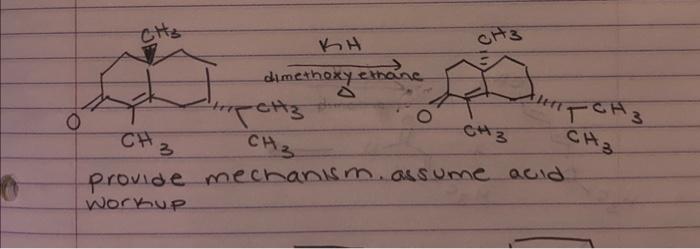 CH3 KH CH3
dimethoxy ethane
Δ
CH3 CH3
O O
CH3 CH3 CH3 CH3
provide mechanism. assume acid
workup